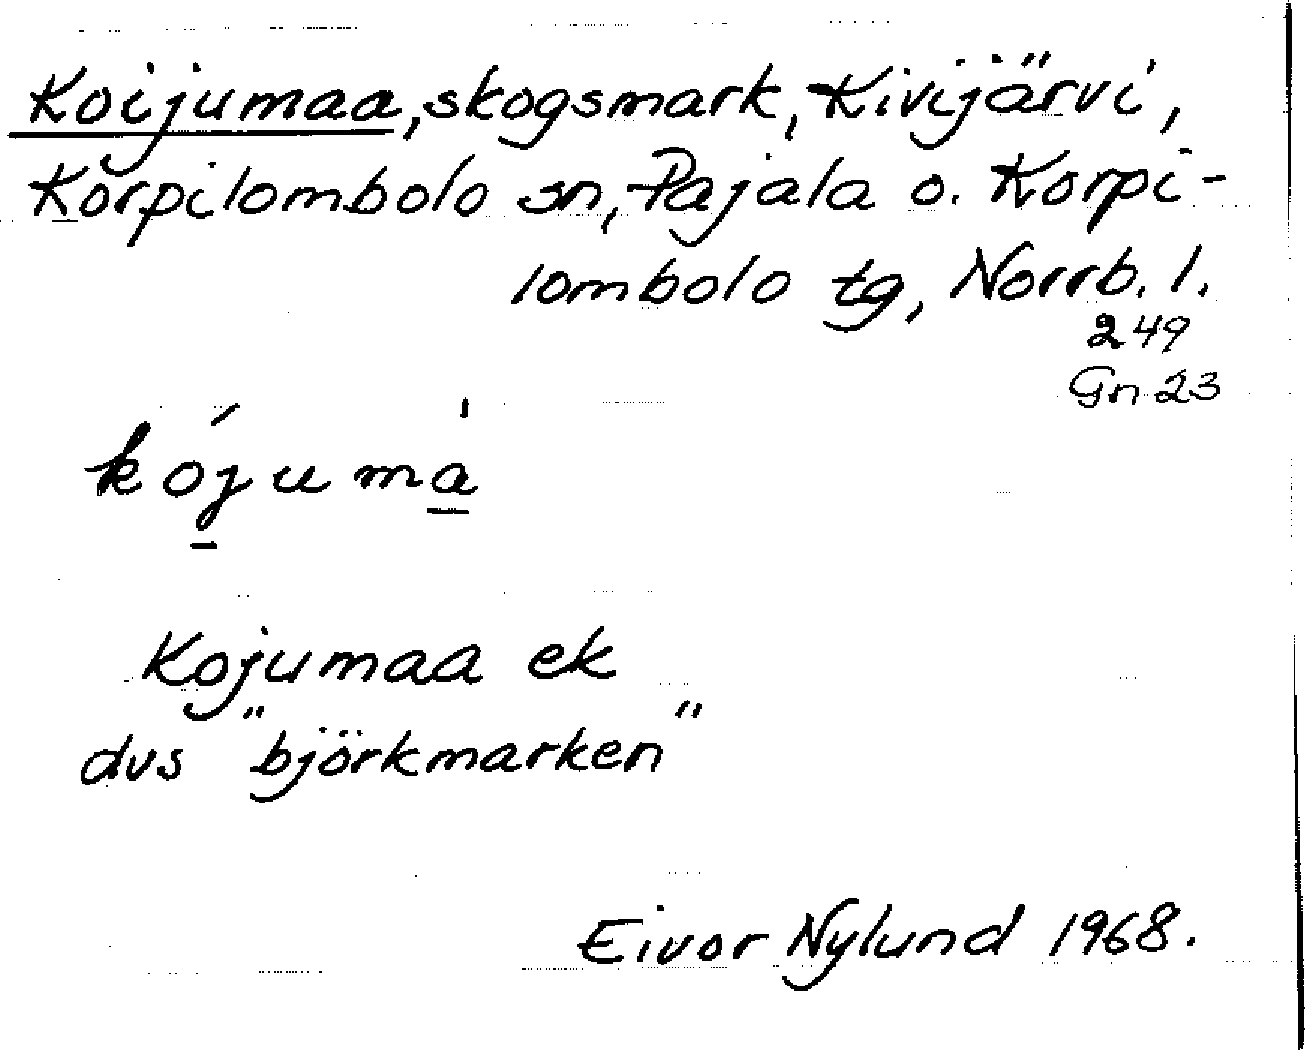 Koijumaa, skogsmark, Kivijärvi,
Korpilombolo sn, Pajala o. Korpi-
lombolo tg, Norrb. l.
249
Gn 23
kójumà
Kojumaa ek
dvs "björkmarken"
Eivor Nylund 1968.